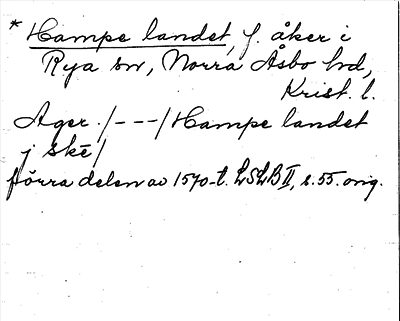 * Hampe landet, f. åker i
Rya sn, Norra Åsbo hd,
Krist. l.
Ager /---/ Hampe landet
j skē/
förra delen av 1570-t. LSLB II, s. 55. orig.